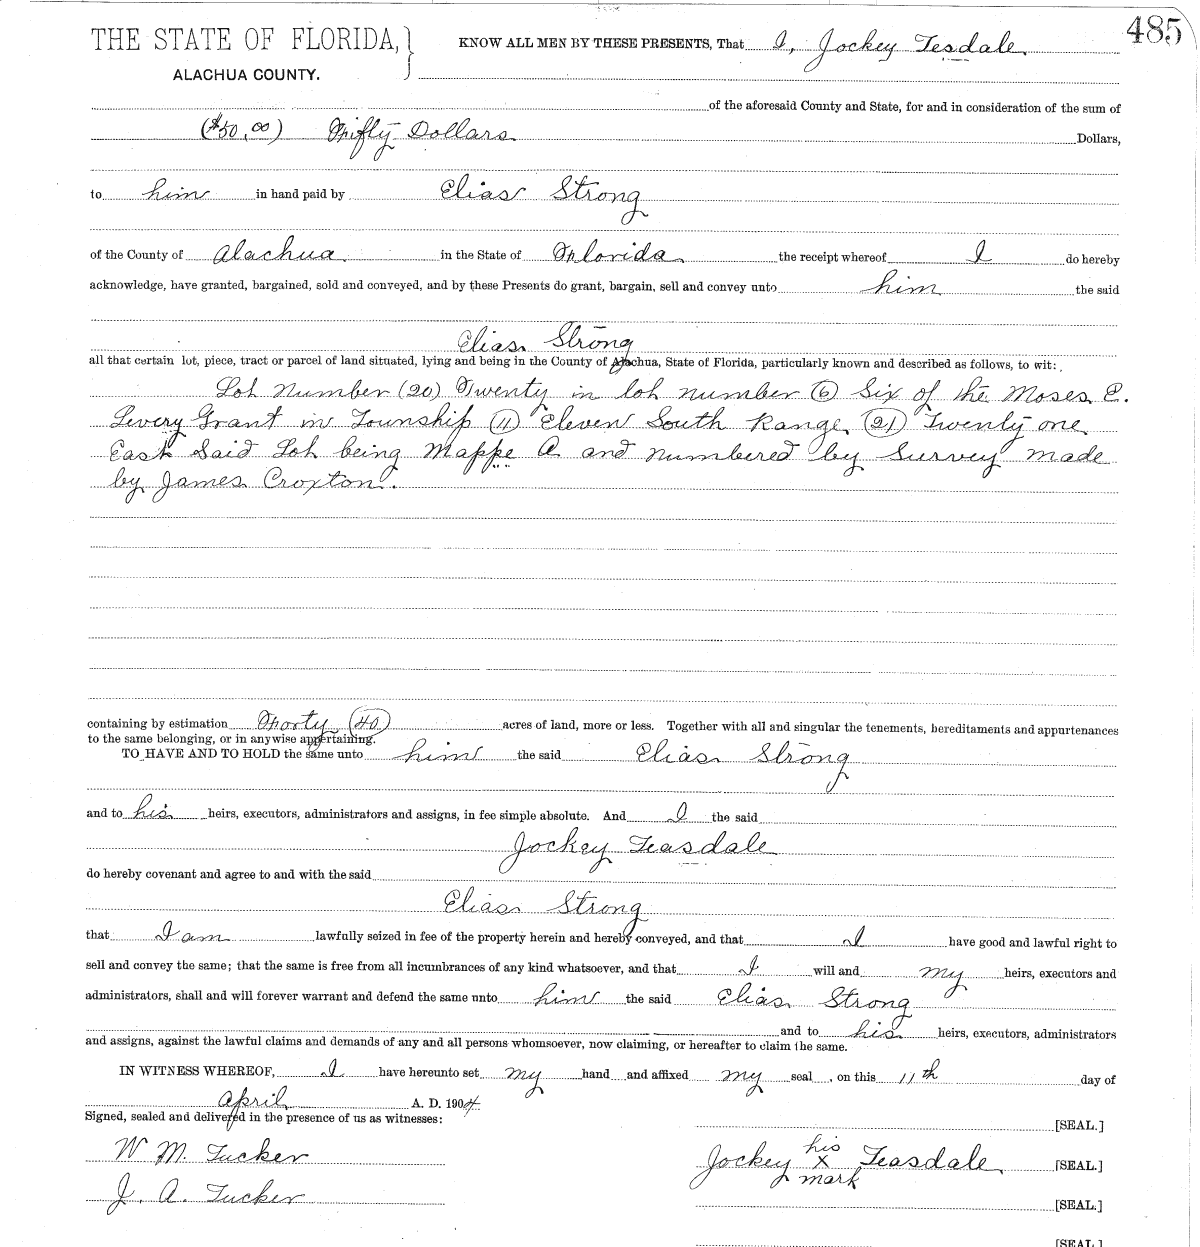 485
THE STATE OF FLORIDA, } KNOW ALL MEN BY THESE PRESENTS, That I, Jockey Tesdale
ALACHUA COUNTY.
of the aforesaid County and State, for and in consideration of the sum of
($50,00) Fifty Dollars Dollars,
to him in hand paid by Elias Strong
of the County of Alachua in the State of Florida the receipt whereof I do hereby
acknowledge, have granted, bargained, sold and conveyed, and by these Presents do grant, bargain, sell and convey unto him the said
Elias Strong
all that certain lot, piece, tract or parcel of land situated, lying and being in the County of Alachua, State of Florida, particularly known and described as follows, to wit:
Lot Number (20) Twenty in lot number (6) Six of the Moses E.
Levery Grant in Township (11) Eleven South Range (21) Twenty one
East Said Lot being Mappe A and numbered by Survey made
by James Croxton.
containing by estimation Forty (40) acres of land, more or less. Together with all and singular the tenements, hereditaments and appurtenances
to the same belonging, or in anywise appertaining.
TO HAVE AND TO HOLD the same unto him the said Elias Strong
and to his heirs, executors, administrators and assigns, in fee simple absolute. And I the said
Jockey Teasdale
do hereby covenant and agree to and with the said
Elias Strong
that I am lawfully seized in fee of the property herein and hereby conveyed, and that I have good and lawful right to
sell and convey the same; that the same is free from all incumbrances of any kind whatsoever, and that I will and my heirs, executors and
administrators, shall and will forever warrant and defend the same unto him the said Elias Strong
and to his heirs, executors, administrators
and assigns, against the lawful claims and demands of any and all persons whomsoever, now claiming, or hereafter to claim the same.
IN WITNESS WHEREOF, I have hereunto set my hand and affixed my seal , on this 11th day of
April A. D. 1904
Signed, sealed and delivered in the presence of us as witnesses:
[SEAL.]
W M. Tucker
Jockey his x mark Teasdale [SEAL.]
J. A. Tucker
[SEAL.]
[SEAL.]